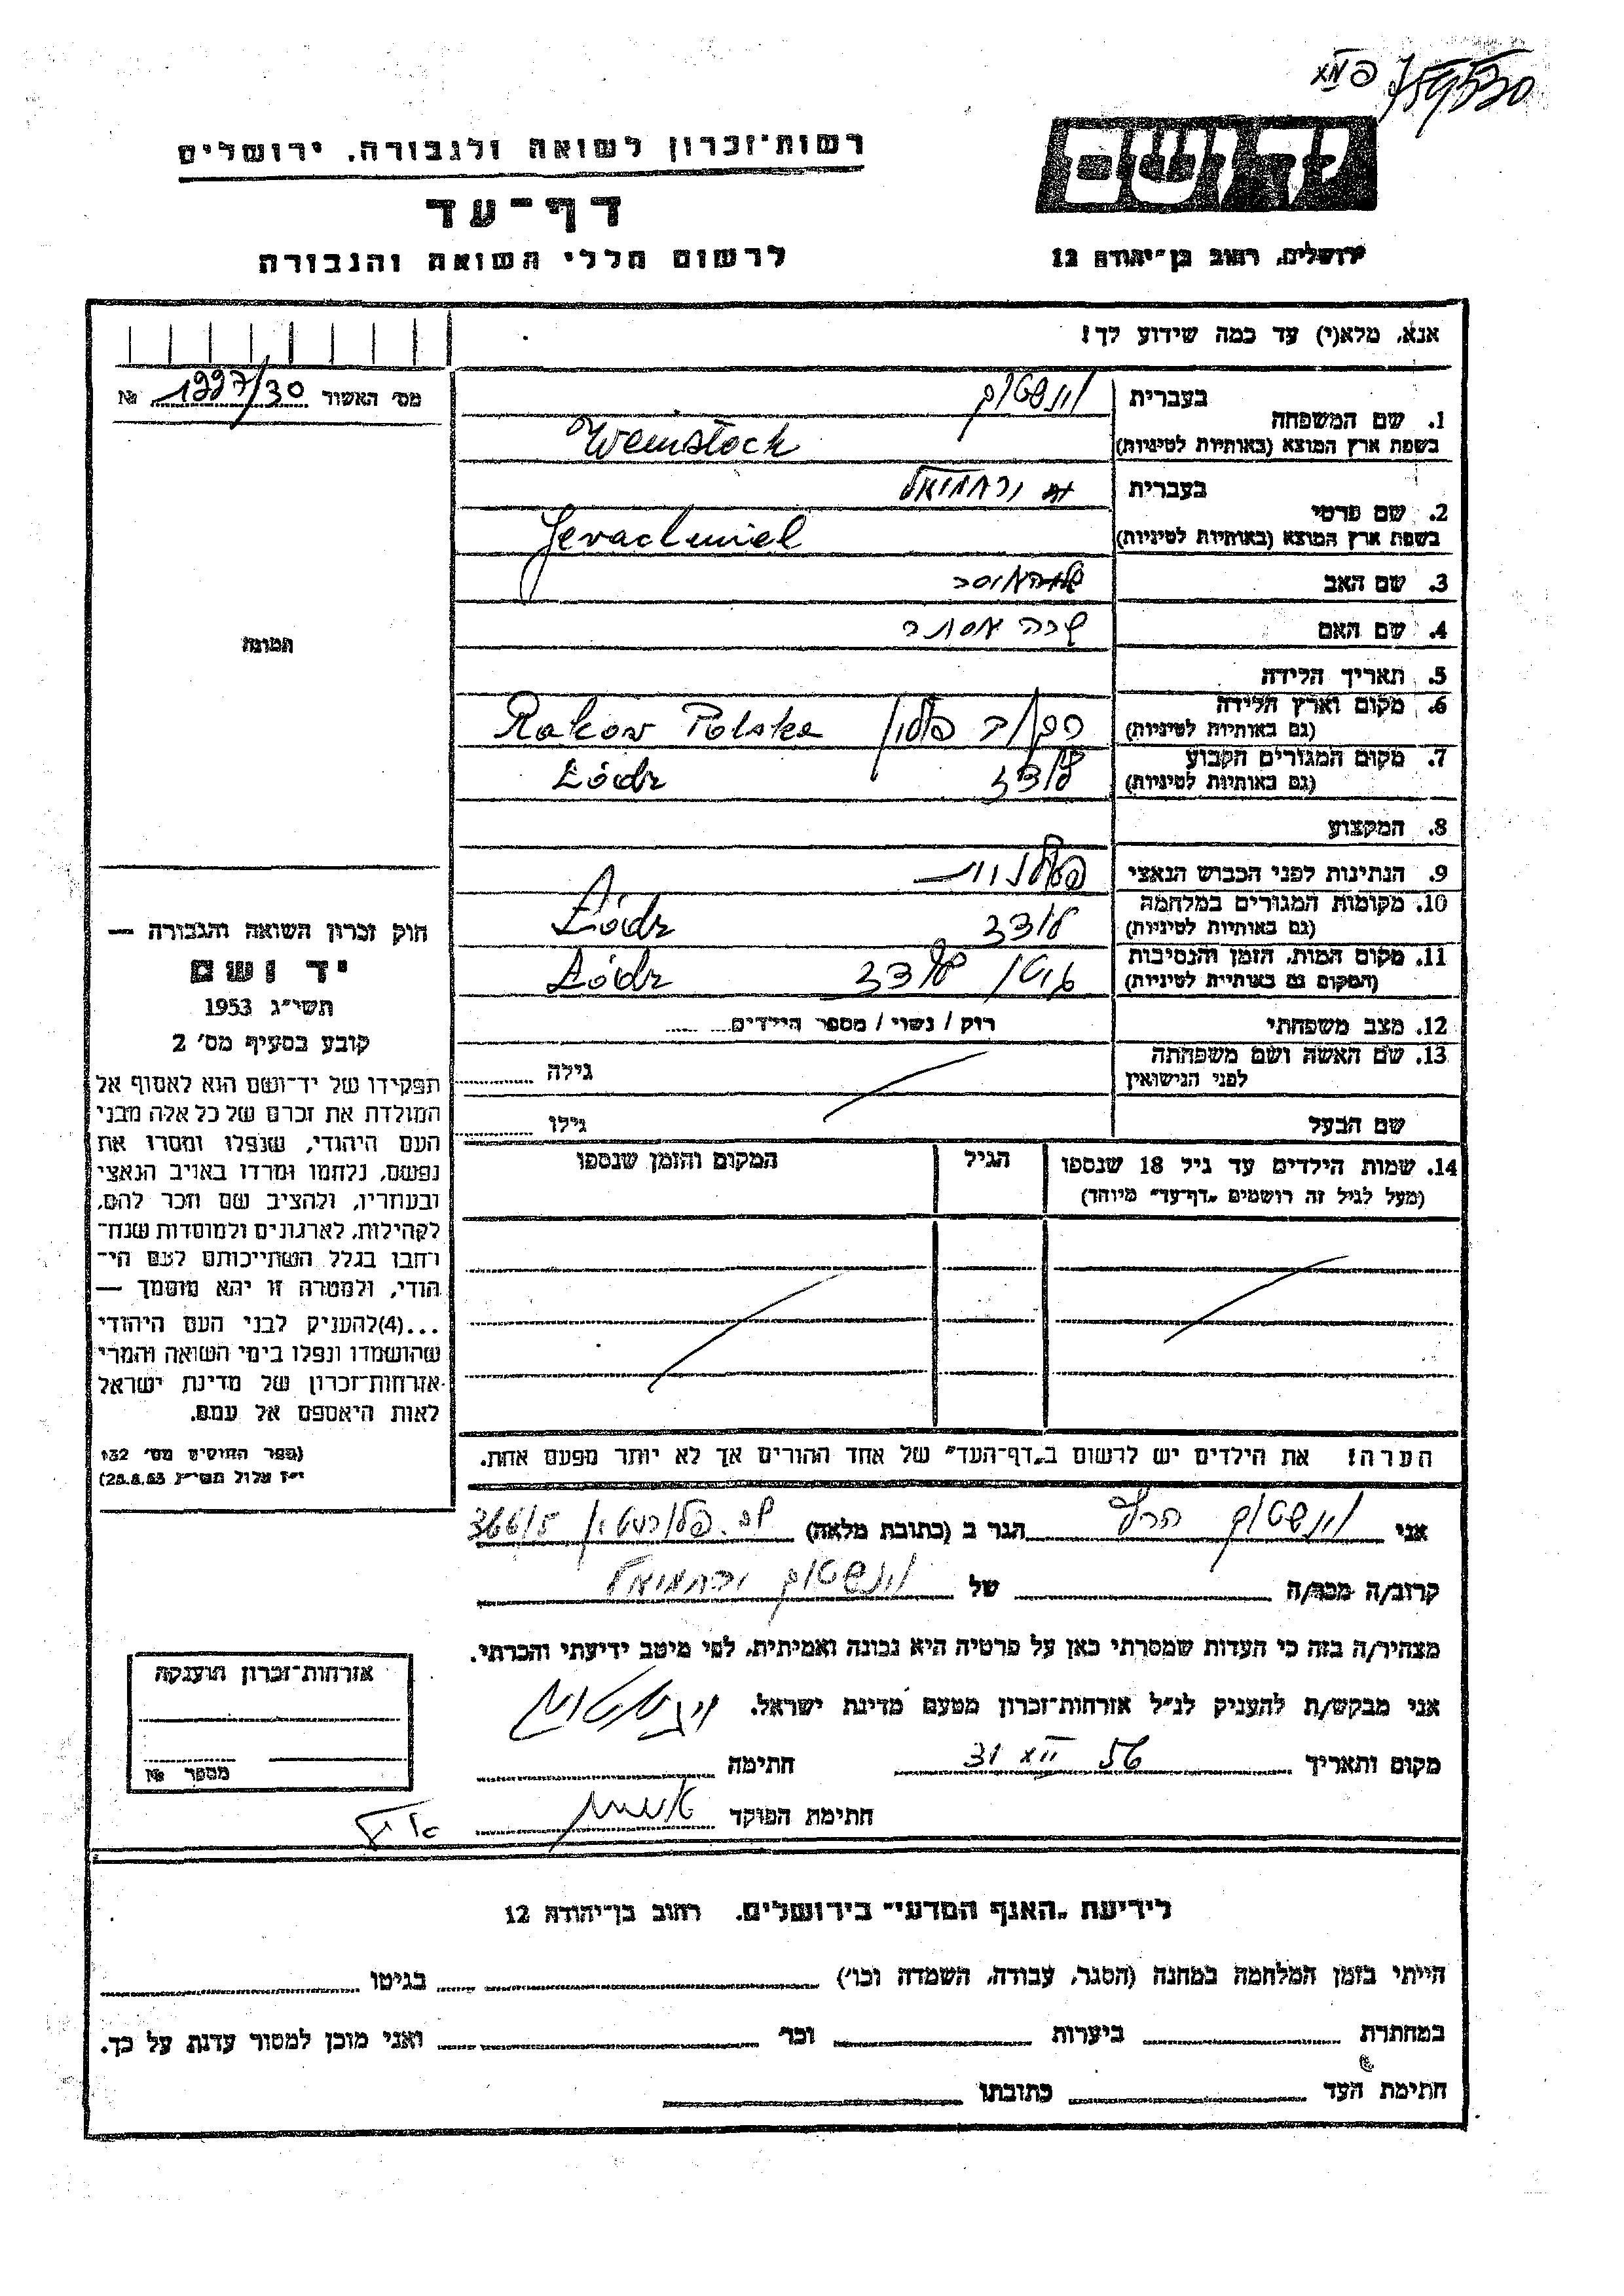 רשות־זכרון לשואה ולגבורה, ירושלים
דף־עד
לרשום חללי השואה והגבורה
יד ושם
ירושלים, רחוב בן־יהודה 12
אנא, מלא(י) עד כמה שידוע לך!
מס׳ האשור 1997/30 №
תמונה
1. שם המשפחה
בעברית וינשטוק
בשפת ארץ המוצא (באותיות לטיניות) Weinstock
2. שם פרטי
בעברית ירחמיאל
בשפת ארץ המוצא (באותיות לטיניות) Jerachmiel
3. שם האב
4. שם האם שרה אסתר
5. תאריך הלידה
6. מקום וארץ הלידה
(גם באותיות לטיניות) פולין Rakow Polska
7. מקום המגורים הקבוע
(גם באותיות לטיניות) לודז Łódz
8. המקצוע
9. הנתינות לפני הכבוש הנאצי פולנית
10. מקומות המגורים במלחמה
(גם באותיות לטיניות) לודז Łódz
11. מקום המות, הזמן והנסיבות
(המקום גם באותיות לטיניות) גיטו לודז Łódz
12. מצב משפחתי רוק / נשוי / מספר הילדים
13. שם האשה ושם משפחתה
לפני הנישואין גילה
שם הבעל גילו
14. שמות הילדים עד גיל 18 שנספו הגיל המקום והזמן שנספו
(מעל לגיל זה רושמים „דף־עד” מיוחד)
הערה! את הילדים יש לרשום ב„דף־העד” של אחד ההורים אך לא יותר מפעם אחת.
חוק זכרון השואה והגבורה —
יד ושם
תשי״ג 1953
קובע בסעיף מס׳ 2
תפקידו של יד־ושם הוא לאסוף אל
המולדת את זכרם של כל אלה מבני
העם היהודי, שנפלו ומסרו את
נפשם, נלחמו ומרדו באויב הנאצי
ובעוזריו, ולהציב שם וזכר להם,
לקהילות, לארגונים ולמוסדות שנח־
רחבו בגלל השתייכותם לעם הי־
הודי, ולמטרה זו יהא מוסמך —
...(4)להעניק לבני העם היהודי
שהושמדו ונפלו בימי השואה והמרי
אזרחות־זכרון של מדינת ישראל
לאות היאספם אל עמם.
(ספר החוקים מס׳ 132
י״ז אלול תשי״ג 28.8.53)
אני וינשטוק הגר ב (כתובת מלאה) 366/5
קרוב/ה מכר/ה של וינשטוק ירחמיאל
מצהיר/ה בזה כי העדות שמסרתי כאן על פרטיה היא נכונה ואמיתית, לפי מיטב ידיעתי והכרתי.
אני מבקש/ת להעניק לנ״ל אזרחות־זכרון מטעם מדינת ישראל.
מקום ותאריך 31 XII 56 חתימה
חתימת הפוקד
אזרחות־זכרון הוענקה
מספר №
לידיעת „האגף המדעי” בירושלים, רחוב בן־יהודה 12
הייתי בזמן המלחמה במחנה (הסגר, עבודה, השמדה וכו׳) בגיטו
במחתרת ביערות וכו׳ ואני מוכן למסור עדות על כך.
חתימת העד כתובתו